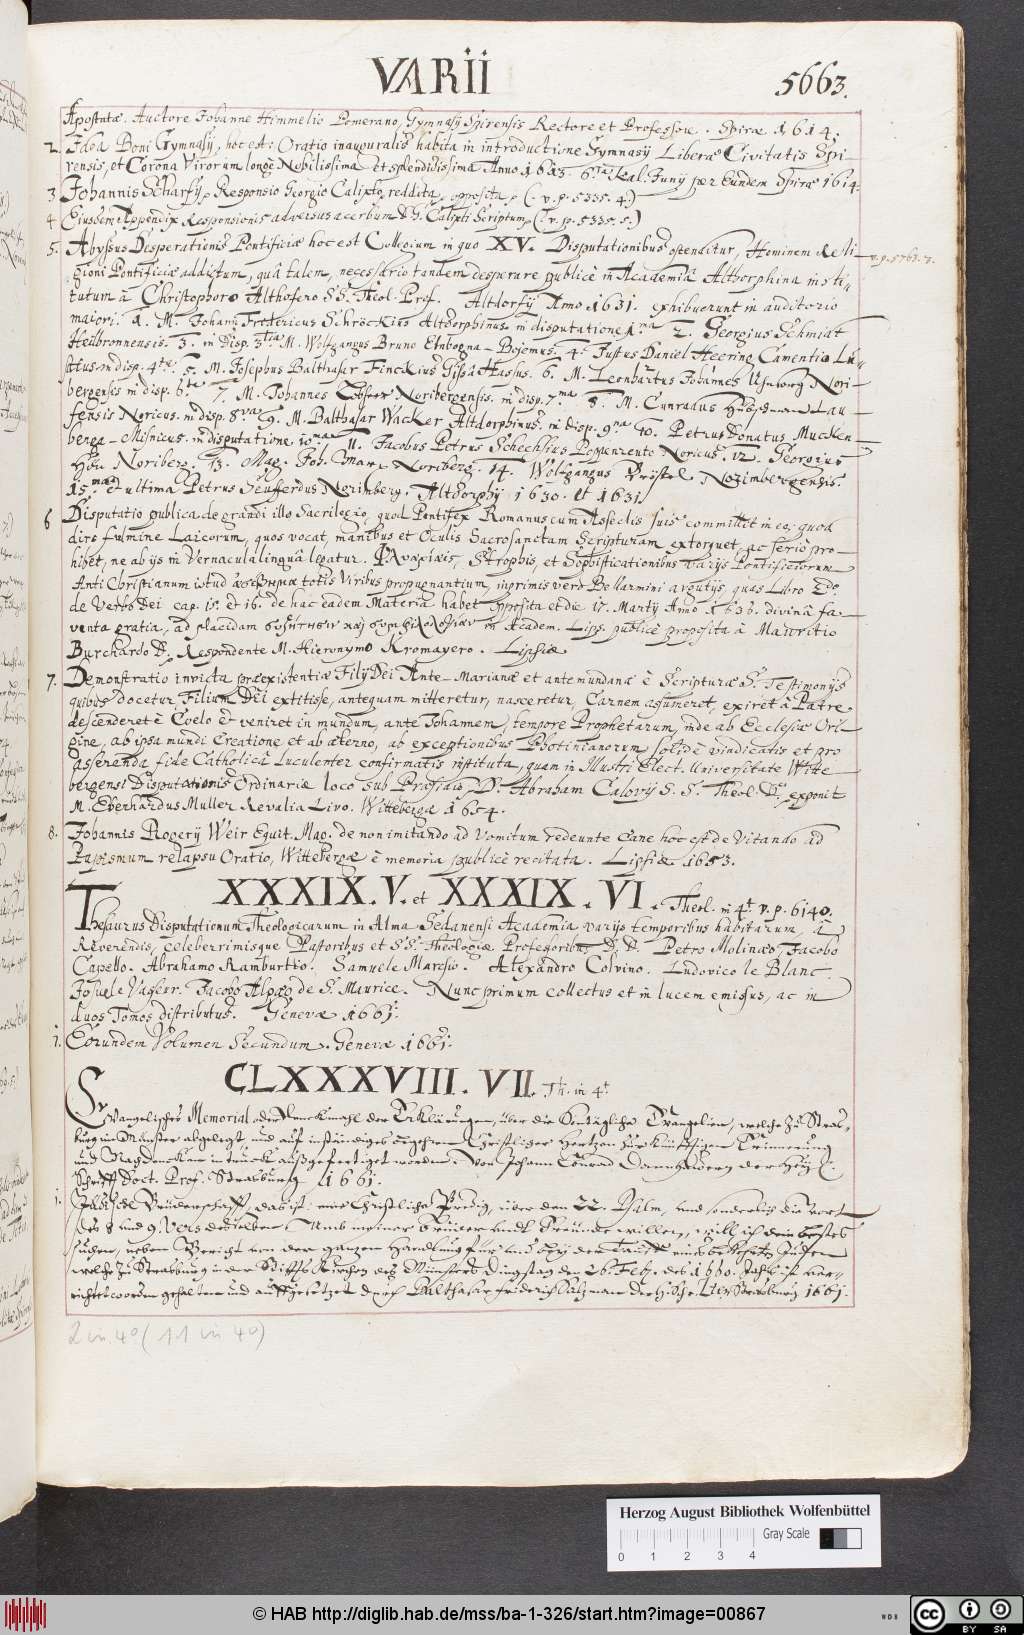 VARII
5663.
Apostatæ. Auctore Johanne Himmelio Pomerano, Gymnasÿ Spirensis Rectore et Professore. Spiræ 1614.
2. Idea Boni Gymnasÿ, hoc est: Oratio inauguralis habita in introductione Gymnasÿ Liberæ Civitatis Spi-
rensis, et Corona Virorum longè Nobilissima et splendidissima Anno 1613. Kal. Junÿ per Eundem Spiræ 1614.
3 Johannis Scharfÿ, Responsio Georgio Calixto reddita, opposita, (. v. p. 5335. 4.)
4 Eiusdem Appendix Responsionis adversus acerbum D. G. Calixti Scriptum, (. v. p. 5335. 5.)
5. Abyssus Desperationis Pontificiæ hoc est Collegium in quo XV. Disputationibus ostenditur, Hominem Reli- v. p. 5763. 7.
gioni Pontificiæ addictum, quâ talem, necessario tandem desperare publicè in Academiâ Altdorphina insti-
tutum â Christophoro Althofeno SS. Theol. Prof. Altdorfÿ Anno 1631. exhibuerunt in auditorio
maiori. 1. M. Johann Fridericus Schröckius Altdorphinus in disputatione 1ma 2. Georgius Schmidt
Heilbronnensis. 3. in Disp. 3tia M. Wolfgangus Bruno Elnbogna-Bojemus. 4. Justus Daniel Heering Camentio Lu-
satus in disp. 4ta. 5. M. Josephus Balthasar Finckius Gissâ Hassus. 6. M. Leonhartus Johannes Nori-
bergensis in disp. 6ta 7. M. Johannes Noribergensis. in disp. 7ma 8. M. Cunradus Lau-
fensis Noricus. in disp. 8va 9. M. Balthasar Wacker Altdorphinus. in disp. 9na 10. Petrus Donatus Mucken-
berga-Misnicus. in disputatione 10ma 11. Jacobus Petrus Schechsius Poppenreute Noricus. 12. Georgius
Noriberg. 13. Mag. Joh. Noriberg. 14. Wolfgangus Norimbergensis.
15. mâ et ultima Petrus Seufferdus Norimberg. Altdorphÿ 1630. et 1631.
6 Disputatio publica de grandi illo Sacrilegio, quod Pontifex Romanus cum Asseclis suis committit in eo, quod
diro fulmine Laicorum, quos vocat, manibus et Oculis Sacrosanctam Scripturam extorquet, ac seriò pro-
hibet, ne ab ÿs in Vernaculâ linguâ legatur. Strophis, et Sophisticationibus variÿs Pontificiorum
Anti Christianum istud totis Viribus propugnantium, inprimis verò Bellarmini argutÿs, quas Libro 2do
de Verbo Dei cap. 15. et 16. de hac eadem Materia habet opposita et die 17. Martÿ Anno 1636. divinâ fa-
venta gratia, ad placidam in Academ. Lips. publicè proposita â Mauritio
Burchardo D. Respondente M. Hieronymo Kromayero. Lipsiæ
7. Demonstratio invicta præexistentiæ Filÿ Dei Ante-Marianæ et antemundanæ è Scripturæ S. Testimonÿs
quibus docetur, Filium Dei extitisse, antequam mitteretur, nasceretur, Carnem assumeret, exiret â Patre
descenderet è Coelo & veniret in mundum, ante Johannem, tempore Prophetarum, inde ab Ecclesiæ Ori-
gine, ab ipsa mundi Creatione et ab æterno, ab exceptionibus Photinianorum solidè vindicatis et pro
asserenda fide Catholicâ Luculenter confirmatis instituta, quam in Illustri Elect. Universitate Witte-
bergensi Disputationis Ordinariæ loco sub Præsidio Dn. Abraham Calovÿ S. S. Theol. D. exponit
M. Everhardus Muller Revalia Livo. Wittebergæ 1654.
8. Johannis Rogerÿ Weir Equit. Mag. de non imitando ad vomitum redeunte Cane hoc est de Vitando ad
Papismum relapsu Oratio, Wittebergæ è memoria publicè recitata. Lipsiæ 1653.
XXXIX. V. et XXXIX. VI. Theol. in 4t. v. p. 6140.
Thesaurus Disputationum Theologicarum in Alma Sedanensi Academia varÿs temporibus habitarum, â
Reverendis, Celeberrimisque Pastoribus et SS. Theologiæ Professoribus D. D. Petro Molinæo, Jacobo
Capello. Abrahamo Ramburtio. Samuele Maresio. Alexandro Colvino. Ludovico le Blanc.
Josue le Vasseur. Jacobo Alpæo de S. Maurice. Nunc primum collectus et in lucem emissus, ac in
duos Tomos distributus. Genevæ 1661.
1. Eorundem Volumen Secundum. Genevæ 1661.
CLXXXVIII. VII. Th. in 4t
Evangelisches Memorial, oder Denckmahl der Erklärungen, über die Sontägliche Evangelien, welche zu Stras-
burg im Münster abgelegt, und auf inständiges begehren Christlicher Hertzen zur künfftigen Erinnerung
und Nachdencken in truck außgefertiget worden. Von Johann Conrad Dannhawern der Heyl.
Schrifft Doct. Prof. Strasburg 1661.
1. Jüdische Brüderschafft, das ist: eine Christliche Predig, über den 22. Psalm, und sonderlich die wort
des 8 und 9. Vers desselben Umb meiner Brüder und Freunde willen, will ich dein bestes
suchen, neben Bericht von der ganzen Handlung für und bey der Tauff eines bekehrten Juden
welche zu Strassburg in der Stiffts Kirchen des Münsters Dingstag den 26. Feb. des 1660. Jahrs ist ver-
richtet worden gehalten und auffgesetzet durch Balthasar Friderich Saltzman Strasburg 1661.
2 in 4° (11 in 4°)
Herzog August Bibliothek Wolfenbüttel
Gray Scale
0 1 2 3 4
© HAB http://diglib.hab.de/mss/ba-1-326/start.htm?image=00867
WDB
cc BY SA